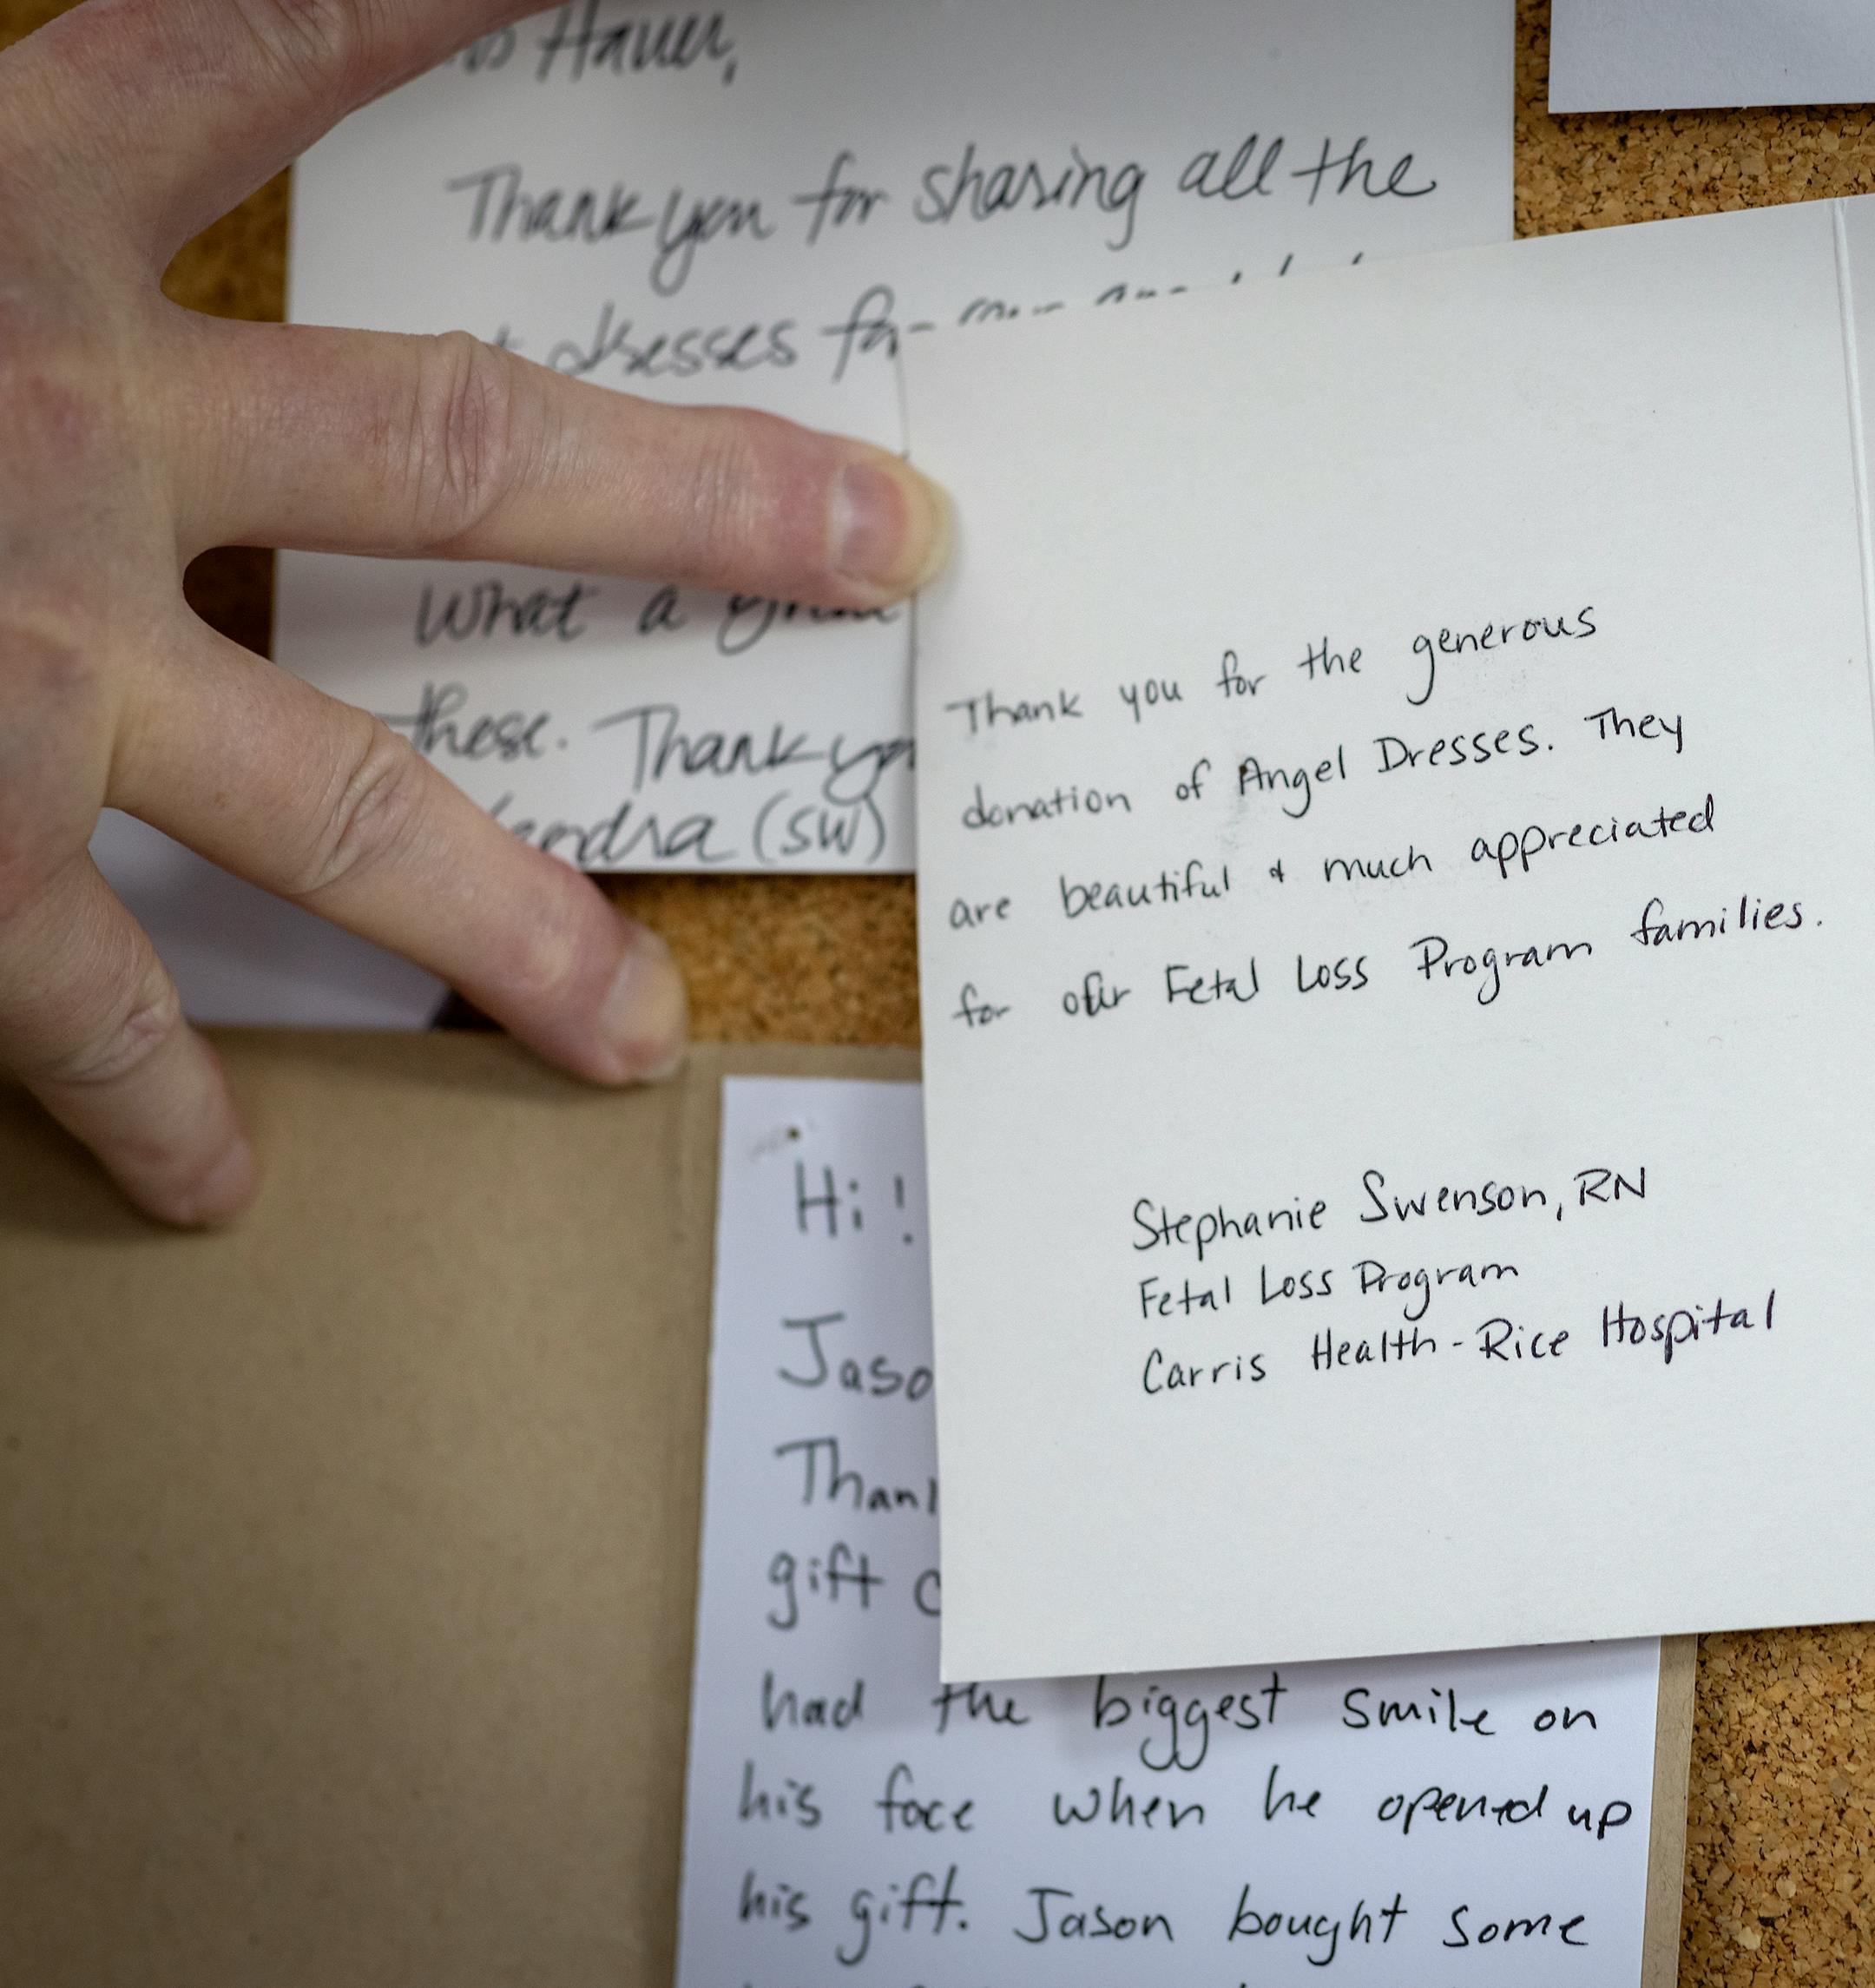 Hauer,
Thank you for sharing all the
dresses for
What a
these. Thank you
(SW)
Thank you for the generous
donation of Angel Dresses. They
are beautiful & much appreciated
for our Fetal Loss Program families.
Stephanie Swenson, RN
Fetal Loss Program
Carris Health-Rice Hospital
Hi!
Jaso
Than
gift c
had the biggest smile on
his face when he opened up
his gift. Jason bought some